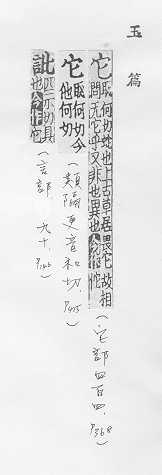 玉篇
它 託何切蛇也上古草居畏它故相
問无它乎又非也異也今作佗
(它部四百四. P368)
它 託何切今
他何切
(類隔更音和切. P405)
匹尔切具
也今作
(言部 九十.